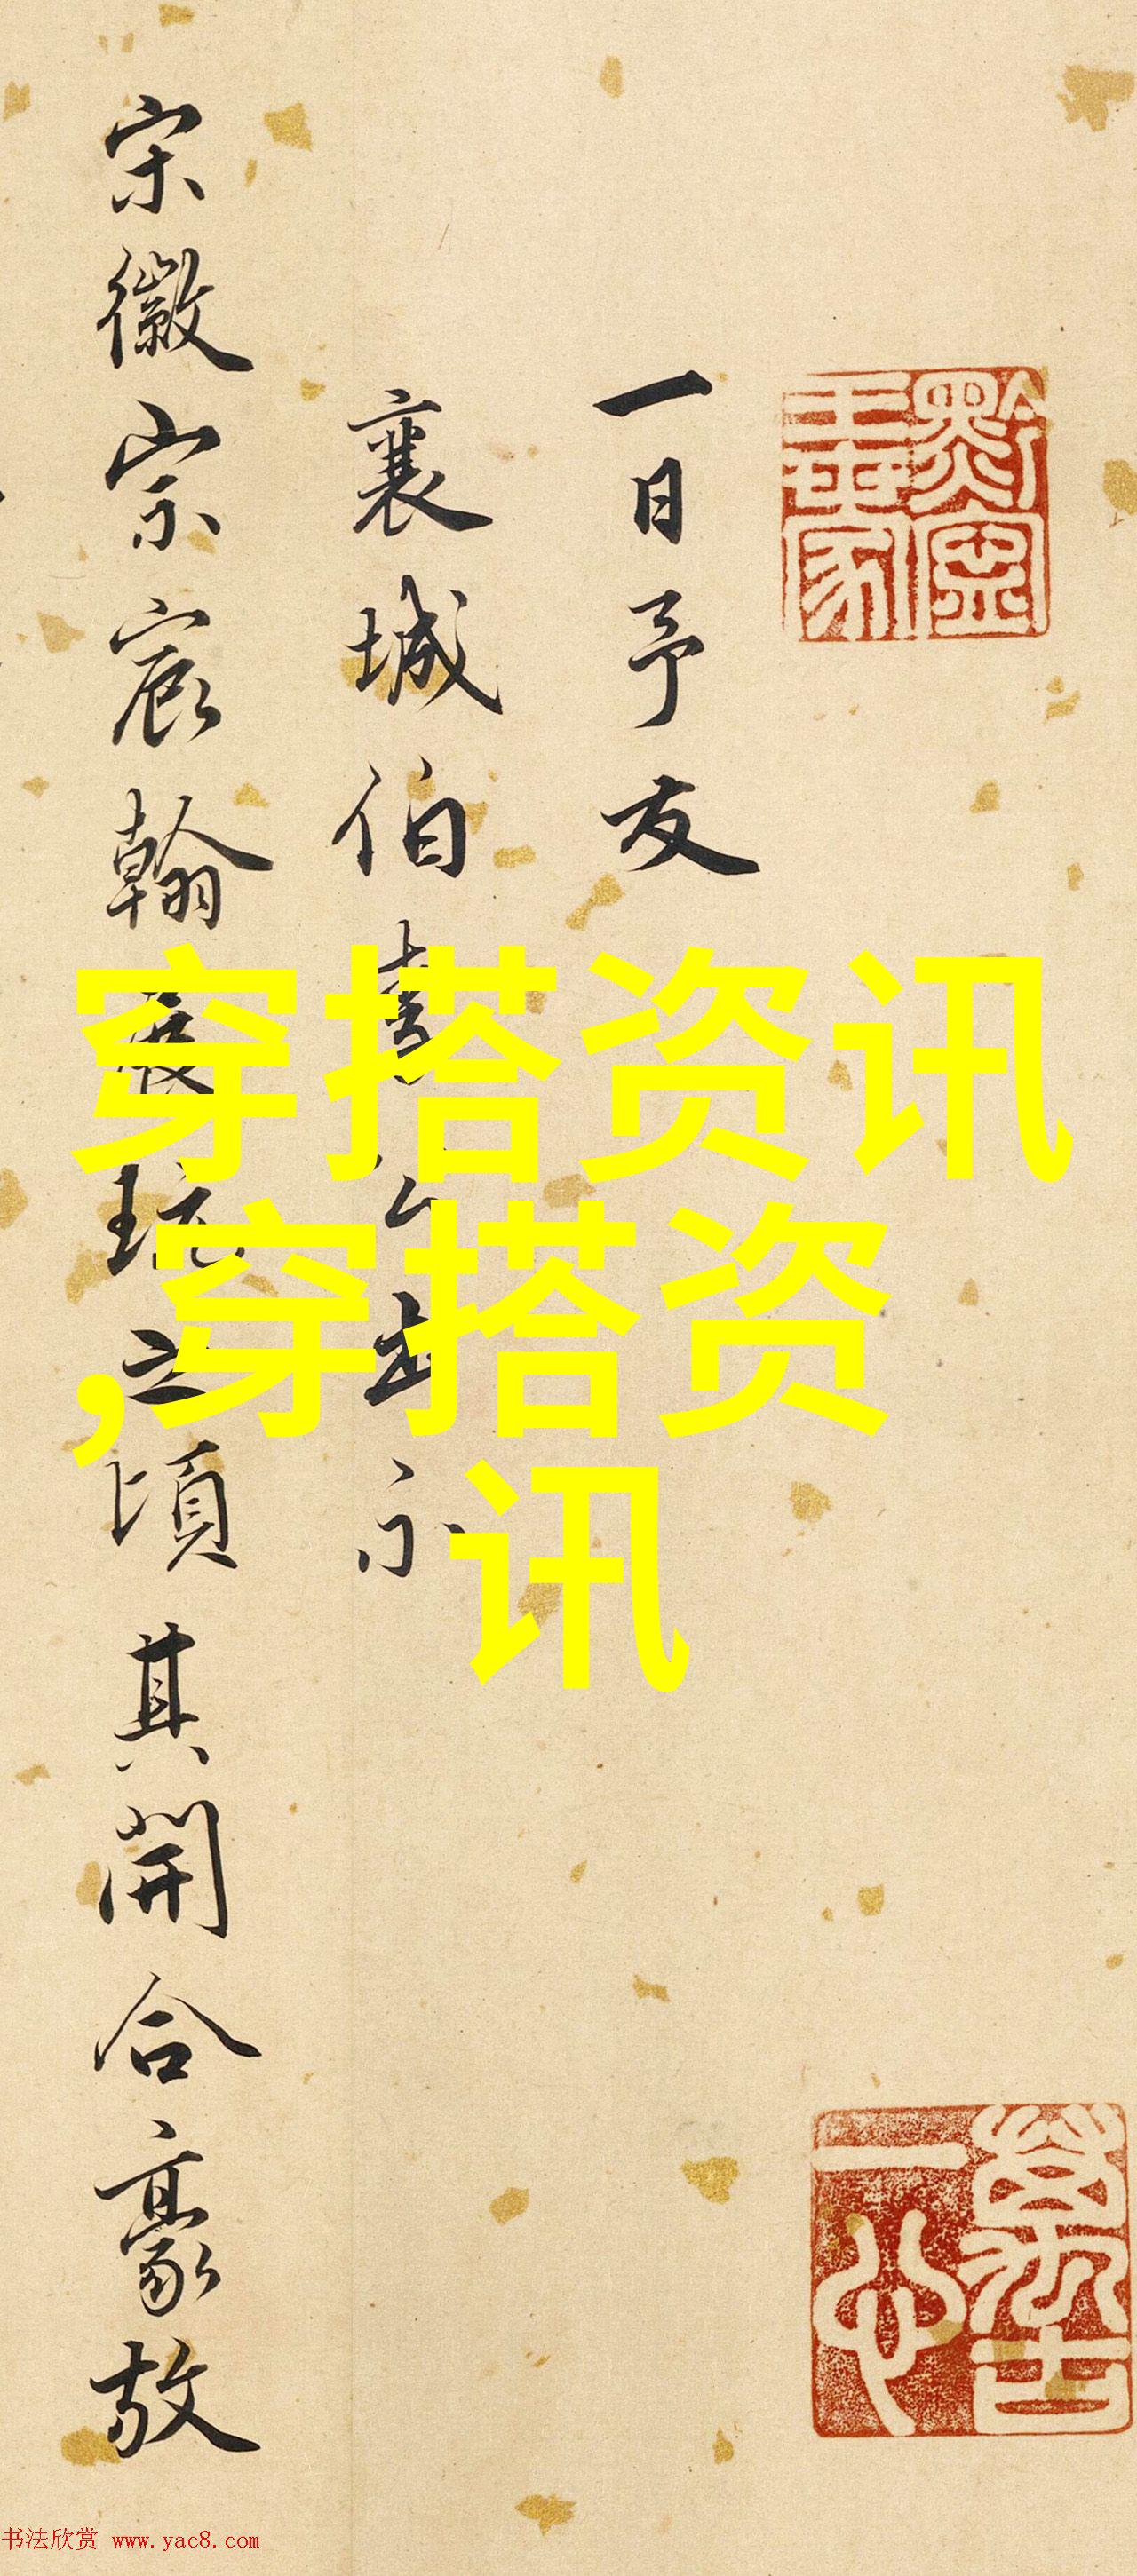 一日予友
襄城伯書公出示
宋徽宗宸翰展玩之頃其開合豪放
穿搭资讯
,穿搭资
讯
书法欣赏 www.yac8.com